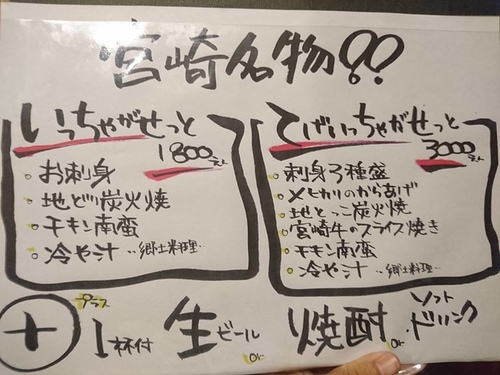 宮崎名物??
いっちゃがせっと
1800えん
お刺身
地どり炭火焼
チキン南蛮
冷や汁 ‥郷土料理‥
てげいっちゃがせっと
3000えん
刺身3種盛
メヒカリのからあげ
地とっこ炭火焼
宮崎牛のスライス焼き
チキン南蛮
冷や汁 ‥郷土料理‥
+ プラス 1杯付 生ビール or 焼酎 or ソフトドリンク